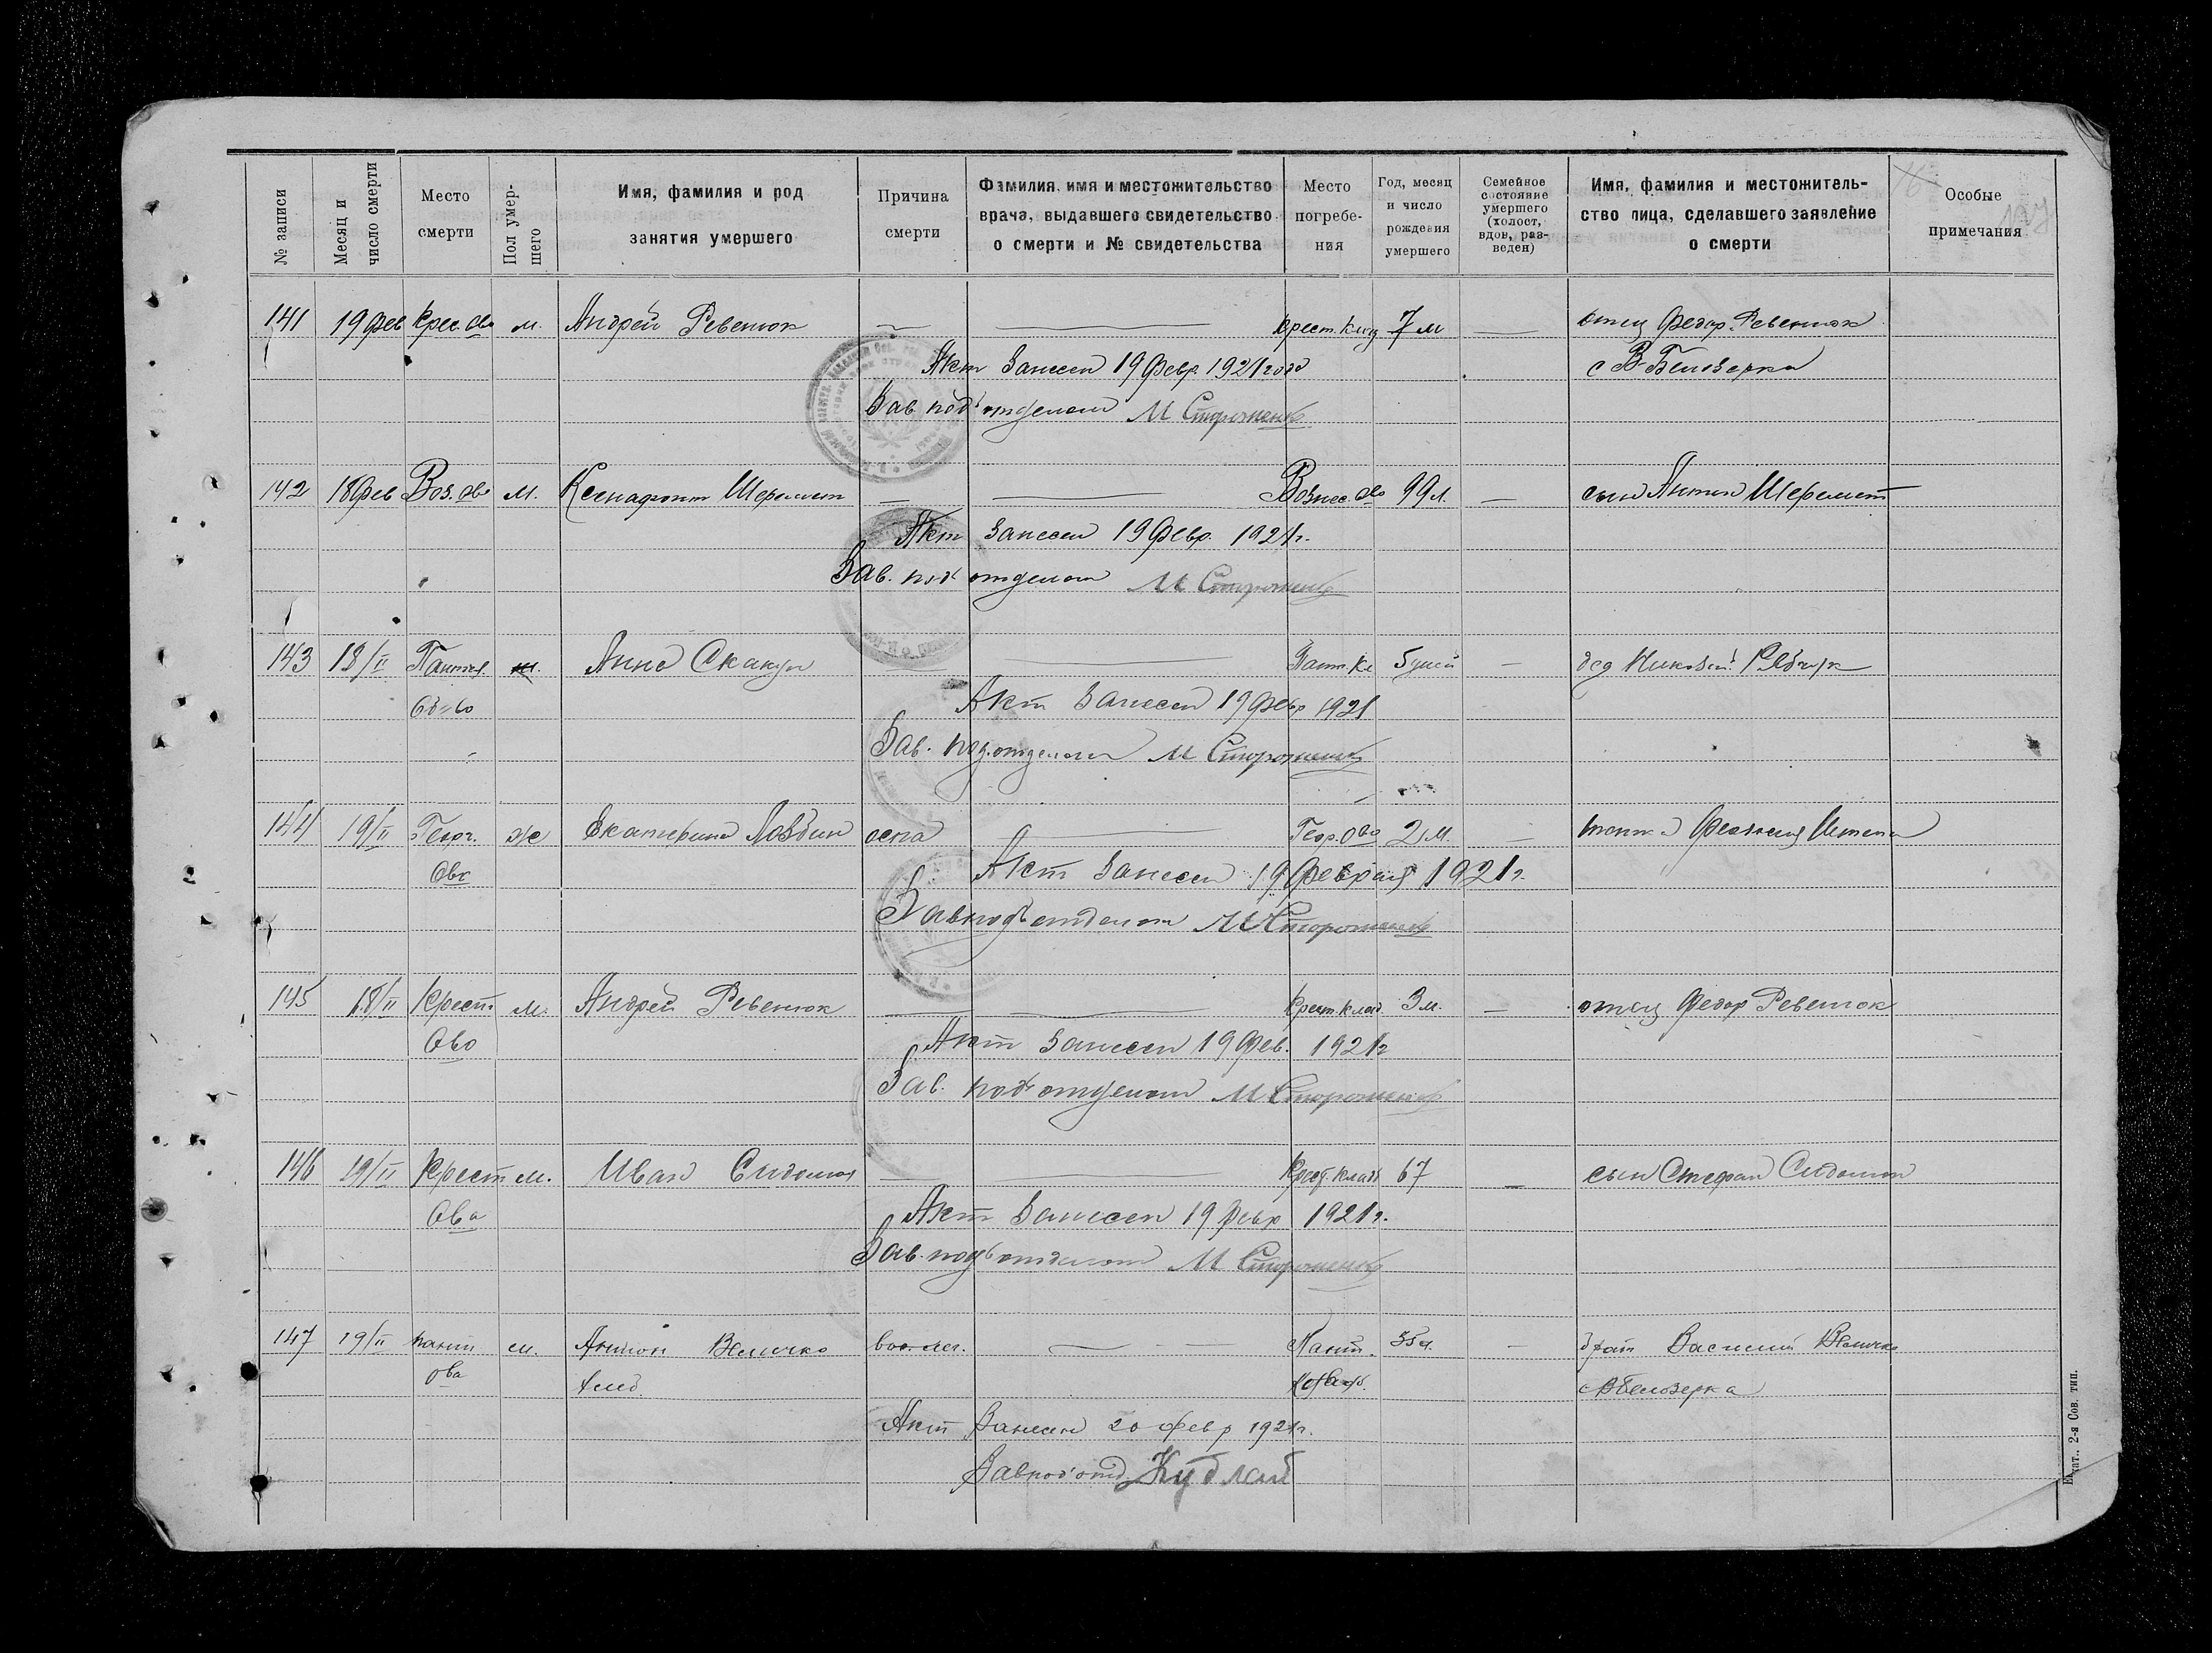 № записи
Месяц и число смерти
Место смерти
Пол умер-шего
Имя, фамилия и род занятия умершего
Причина смерти
Фамилия, имя и местожительство врача, выдавшего свидетельство о смерти и № свидетельства
Место погребе-ния
Год, месяц и число рождения умершего
Семейное состояние умершего (холост, вдов, раз-веден)
Имя, фамилия и местожитель-ство лица, сделавшего заявление о смерти
Особые примечания
141 19 фев Крес. ово м. Андрей Ревенюк — — Крест. клад 7 м — отец Федор Ревенюк
Акт занесен 19 февр 1921 года с В-Белозерка
Зав. под'отделом М Стороженко
142 18 фев Воз. ово М. Ксенафонт Шеремет — — Вознес. ово 99 л. — сын Антон Шеремет
Акт занесен 19 февр. 1921 г.
Зав. под' отделом М Стороженко
143 18/II Пантел. Анна Скакун — — Пант. кл 5 дней — дед Николай
Об-во Акт занесен 19 февр 1921
Зав. под.отделом М Стороженко
144 19/II Георг. ж Екатерина оспа — Геор. ово 2 м. —
Акт занесен 19 февраля 1921 г.
Завподъотделом М Стороженко
145 18/II Крест м. Андрей Ревенюк — — Крест. клад 3 м. — отец Федор Ревенюк
Ово Акт занесен 19 фев. 1921 г
Зав. под' отделом М Стороженко
146 19/II Крест м. Иван — — Крест. клад 67 — сын Стефан
Ова Акт занесен 19 февр 1921 г.
Зав. подъотделом М Стороженко
147 19/II Пант м. Антон Величко вос. лег. — — Пант. 35 л. — брат Василий Величко
ова хлеб В Белозерка
Акт занесен 20 февр 1921 г.
Завпод'отд. Кудлай
Екат. 2-я Сов. тип.